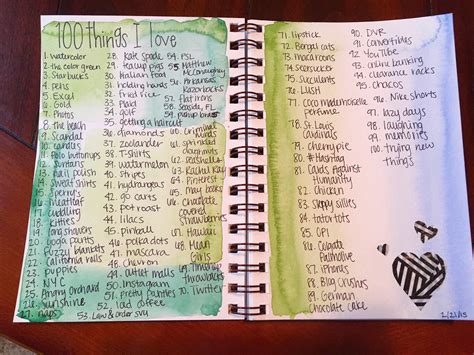 100 things I love
1. watercolor
2. the color green
3. Starbucks
4. pens
5. Excel
6. Gold
7. Photos
8. the beach
9. Scandal
10. candles
11. Polo buttonups
12. suntans
13. nail polish
14. sweat shirts
15. Sperry's
16. meatloaf
17. cuddling
18. kitties
19.
20. yoga pants
21. fuzzy blankets
22. clean towels
23. puppies
24. NYC
25. Angry orchard
26. sunshine
27. naps
28. Kate Spade
29. ketchup
30. Italian food
31. holding hands
32. Fried rice
33. Plaid
34.
35. getting a haircut
36. diamonds
37. zoodles
38. T-Shirts
39. watermelon
40. Stripes
41. hydrangeas
42. go cards
43. pot roast
44. lilacs
45. pinball
46. polka dots
47. mascara
48. chevron
49. outlet malls
50. Instagram
51. pretty panties
52. iced coffee
53. Law & order SVU
54. PSL
55. Matthew
McConaughey
56. Arkansas
Razorbacks
57. Flat irons
58. Seaside, FL
59.
60. Criminal
Minds
61. sprinkled
donuts
62. Seashells
63. Rachel Ray
64. Pinterest
65. May
66. chocolate
covered
strawberries
67. Hawaii
68. Mean
Girls
69. Timehop
throwbacks
70. Twitter
71. lipstick
72. Bengal cats
73. macaroons
74. Seersucker
75. Succulents
76. LUSH
77. Coco mademoiselle
perfume
78. St. Louis
Cardinals
79. cherry pie
80. # Hashtag
81. Cards Against
Humanity
82. Chicken
83. sloppy sillits
84. tator tots
85. OPI
86. Colgate
Palmolive
87. iPhones
88. Blog crushes
89. German
Chocolate Cake
90. DVR
91. convertibles
92. YouTube
93. online banking
94. clearance racks
95. Chacos
96. Nike shorts
97. lazy days
98. laughing
99. memories
100. trying new
things
2/21/15